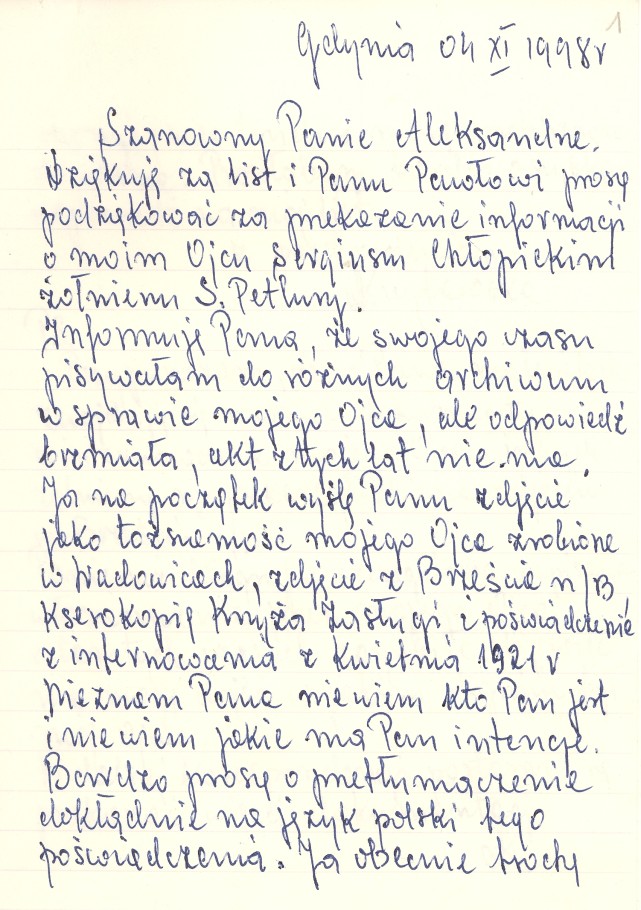 1
Gdynia 04 XI 1998r
Szanowny Panie Aleksandrze.
Dziękuję za list i Panu Pawłowi proszę
podziękować za przekazanie informacji
o moim Ojcu Sergiusm Chłopickim
żołnierzu S. Petlury.
Informuję Pana, że swojego czasu
pisywałam do różnych archiwum
w sprawie mojego Ojca, ale odpowiedź
brzmiała, akt z tych lat nie ma.
Ja na początek wyślę Panu zdjęcie
jako tożsamość mojego Ojca zrobione
w Wadowicach, zdjęcie z Brześcia n/B,
kserokopię Krzyża Zasługi i poświadczenie
z internowania z kwietnia 1921 r
Nieznam Pana niewiem kto Pan jest
i niewiem jakie ma Pan intencje.
Bardzo proszę o przetłumaczenie
dokładnie na język polski tego
poświadczenia. Ja obecnie trochę